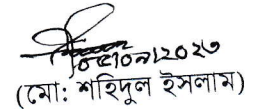 (মো: শহিদুল ইসলাম)